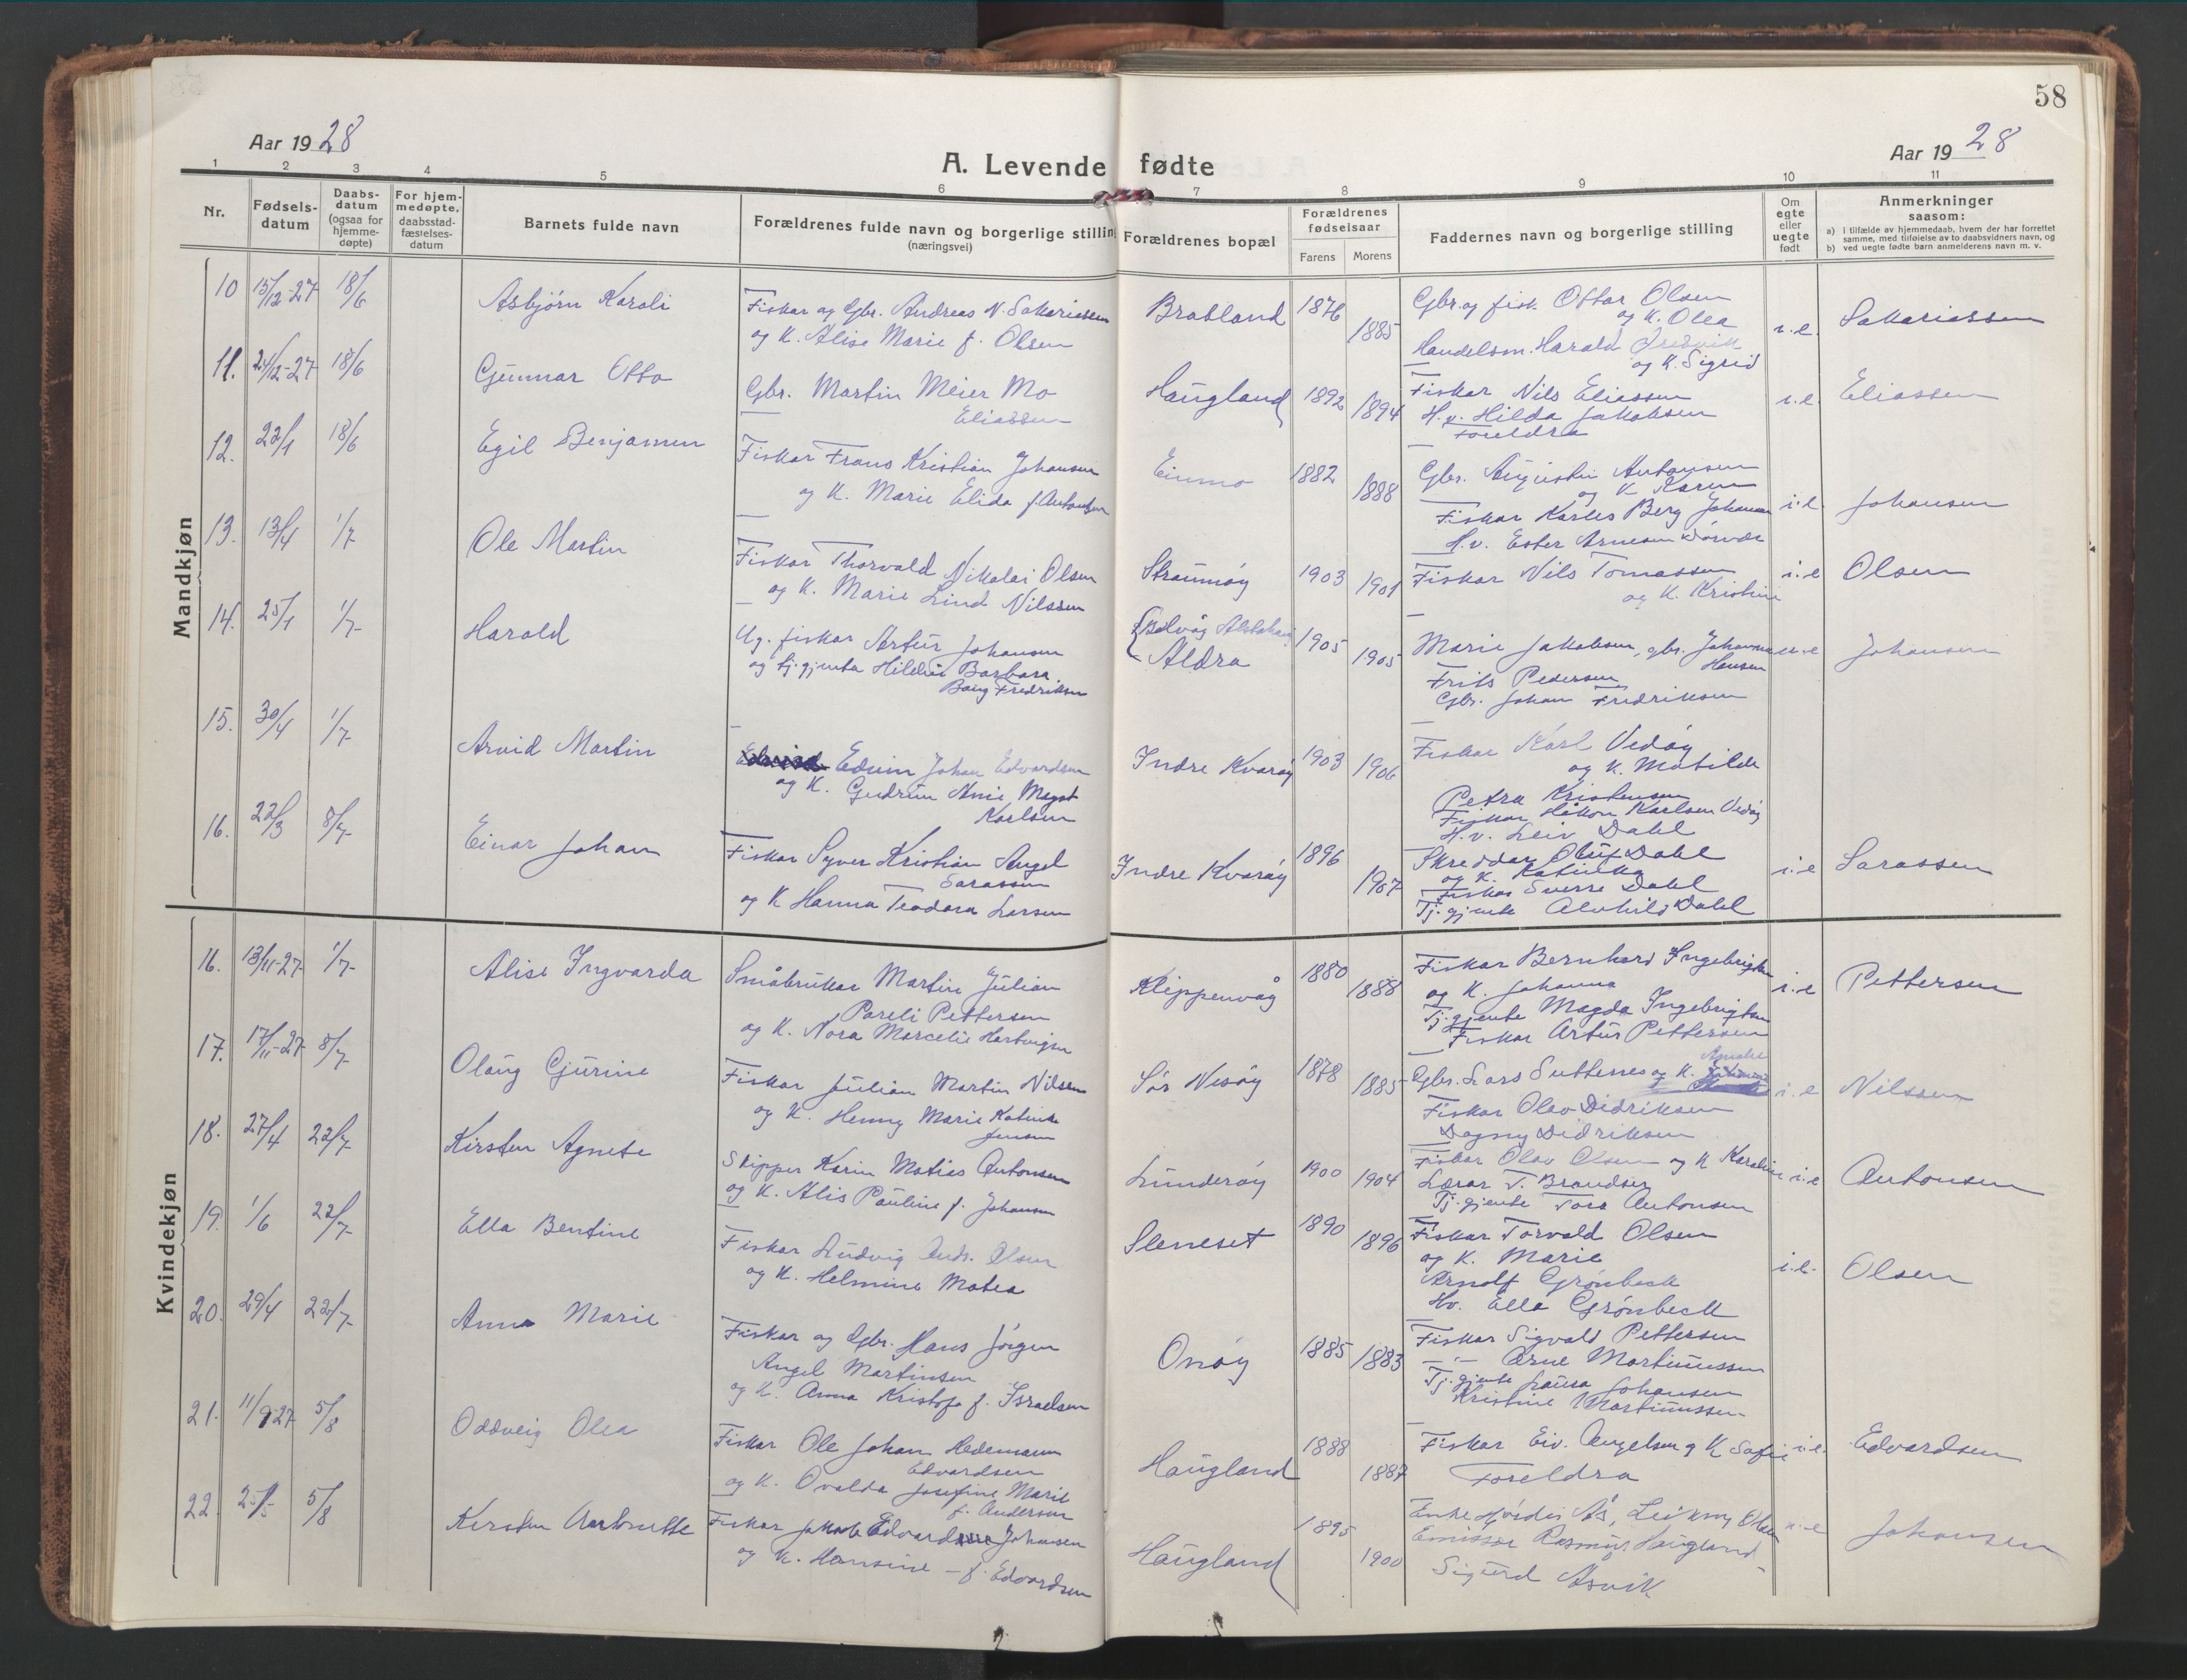 58
Aar 1928
A. Levende fødte
Aar 1928
1 2 3 4 5 6 7 8 9 10 11
Nr.
Fødsels-
datum
Daabs-
datum
(ogsaa for
hjemme-
døpte)
For hjem-
medøpte,
daabsstad-
fæstelses-
datum
Barnets fulde navn
Forældrenes fulde navn og borgerlige stilling
(næringsvei)
Forældrenes bopæl
Forældrenes
fødselsaar
Farens Morens
Faddernes navn og borgerlige stilling
Om
egte
eller
uegte
født
Anmerkninger
saasom:
a) i tilfælde av hjemmedaab, hvem der har forrettet
samme, med tilføielse av to daabsvidners navn, og
b) ved uegte fødte barn anmelderens navn m. v.
Mandkjøn
10 15/12-27 18/6 Asbjørn Karoli
Fiskar og Gbr. Andreas N. Sakariassen
og K. Alise Marie f. Olsen
Bratland 1876 1885
Gbr. og fisk. Ottar Olsen
og K. Olea
Handelsm. Harald
og K. Sigrid
i.e. Sakariassen
11. 24/12-27 18/6 Gunnar Otto
Gbr. Martin Meier Mo
Eliassen
Haugland 1892 1894
Fiskar Nils Eliassen
H.v. Hilda Jakobsen
Foreldra
i.e. Eliassen
12. 22/1 18/6 Egil Benjamin
Fiskar Frans Kristian Johansen
og K. Marie Elida f. Antonsen
Einmo 1882 1888
Gbr. Augustin Antonsen
og K Karen
Fiskar Karles Berg Johansen
H.v. Ester Arnesen
i.e. Johansen
13. 13/4 1/7 Ole Martin
Fiskar Thorvald Nikolai Olsen
og K. Marie Lind Nilssen
Straumøy 1903 1901
Fiskar Nils Tomassen
og K. Kristine
i.e Olsen
14. 25/1 1/7 Harald
Ug. fiskar Artur Johansen
og tj.gjenta Hildur Barbara
Bang Fredriksen
Aldra 1905 1905
Marie Jakobsen, gbr. Johannes
Hansen
Frits Pedersen
Gbr. Johan Fredriksen
u.e Johansen
15. 30/4 1/7 Arvid Martin
Edvin Johan Edvardsen
og K. Gudrun Anie Magst
Karlsen
Indre Kvarøy 1903 1906
Fiskar Karl Vedøy
og K. Matilde
Petra Kristensen
Fiskar Håkon Karlsen Vedøy
16. 22/3 8/7 Einar Johan
Fiskar Syver Kristian Angel
Sarassen
og K Hanna Teodora Larsen
Indre Kvarøy 1896 1907
H.v. Leiv Dahl
Skreddar Oluf Dahl
og K. Katinka
Fiskar Sverre Dahl
Tj.gjente Alvhild Dahl
i.e Sarassen
Kvindekjøn
16. 13/11-27 1/7 Alise Ingvarda
Småbrukar Martin Julian
Pareli Pettersen
og K. Nora Marcelie Hartvigsen
Klippenvåg 1880 1888
Fiskar Bernhard Ingebrigtsen
og K. Johanna
Tj.gjente Magda Ingebrigtsen
Fiskar Artur Pettersen
i.e Pettersen
17. 17/11-27 8/7 Olaug Gjurine
Fiskar Julian Martin Nilsen
og K. Henny Marie Katinka
Jensen
Sør Nesøy 1878 1885
Gbr. Lars Sutternes og K. Amalie
Fiskar Olav Didriksen
Dagny Didriksen
i.e Nilssen
18. 27/4 22/7 Kirsten Agnete
Skipper Karin Matias Antonsen
og K. Alis Pauline f. Johansen
Lunderøy 1900 1904
Fiskar Olav Olsen og K Karoline
Lærar T. Brandser
Tj.gjente Tora Antonsen
i.e Antonsen
19. 1/6 22/7 Ella Bentine
Fiskar Ludvig Andr. Olsen
og K. Helmine Matea
Sleneset 1890 1896
Fiskar Torvald Olsen
og K. Marie
Arnolf Grønbeck
Hv. Ella Grønbeck
i.e. Olsen
20. 29/4 22/7 Anna Marie
Fiskar og Gbr. Hans Jørgen
Angel Martinsen
og K. Anna Kristofa f. Israelsen
Onøy 1885 1883
Fiskar Sigvald Pettersen
—"— Arne Martinussen
Tj.gjente Laura Johansen
Kristine Martinussen
21. 11/9-27 5/8 Oddveig Olea
Fiskar Ole Johan Hedemann
Edvardsen
og K. Ovalda Josefine Marie
f. Andersen
Haugland 1888 1887
Fiskar Eiv. Angelsen og K Sofie
Foreldra
i.e. Edvardsen
22. 25/5 5/8 Kirsten Antonette
Fiskar Jakob Edvard Johansen
og K. Hansine — f. Edvardsen
Haugland 1895 1900
Enke Hjørdis Ås, Leikny Olsen
Emissær Rasmus Haugland
Sigurd Åsvik
i.e Johansen